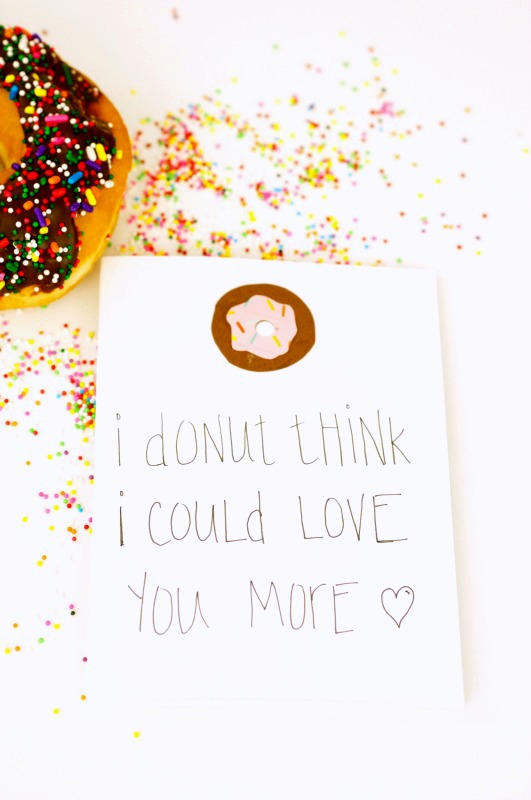 i dONUt tHiNk
i COULd LOVE
YOU MOrE ♡